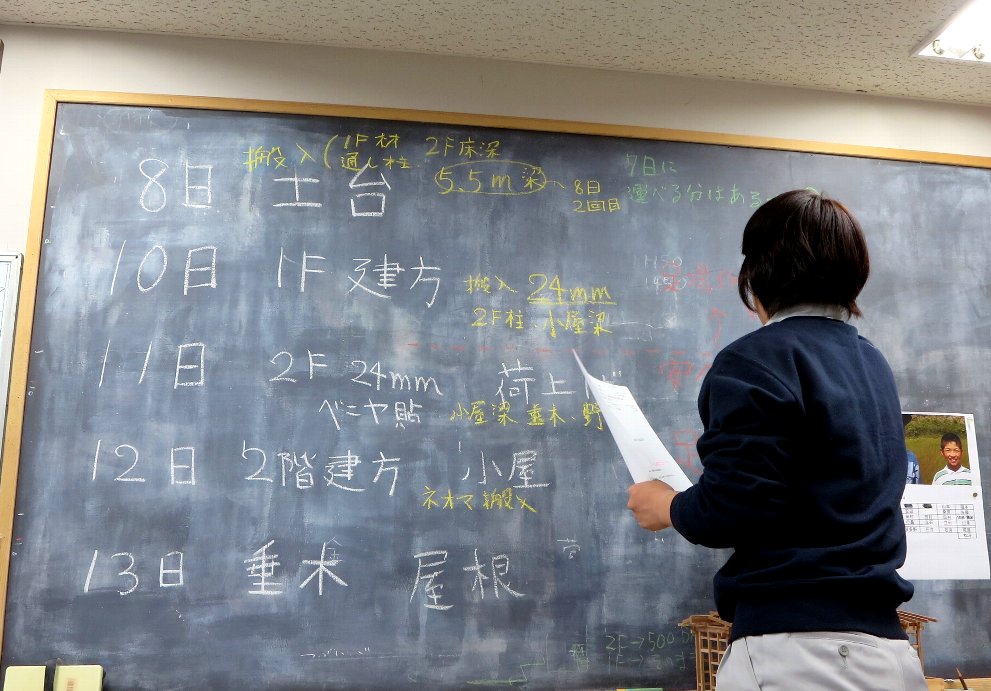 搬入(1F材 2F床梁
通し柱 5.5m梁 8日
2回目
7日に
運べる分はある
8日 土台
10日 1F 建方
搬入 24mm
2F柱 小屋梁
11日 2F 24mm 荷上げ
ベニヤ貼 小屋梁 垂木、野
12日 2階建方 小屋
ネオマ搬入
13日 垂木 屋根
2F→500
1F→